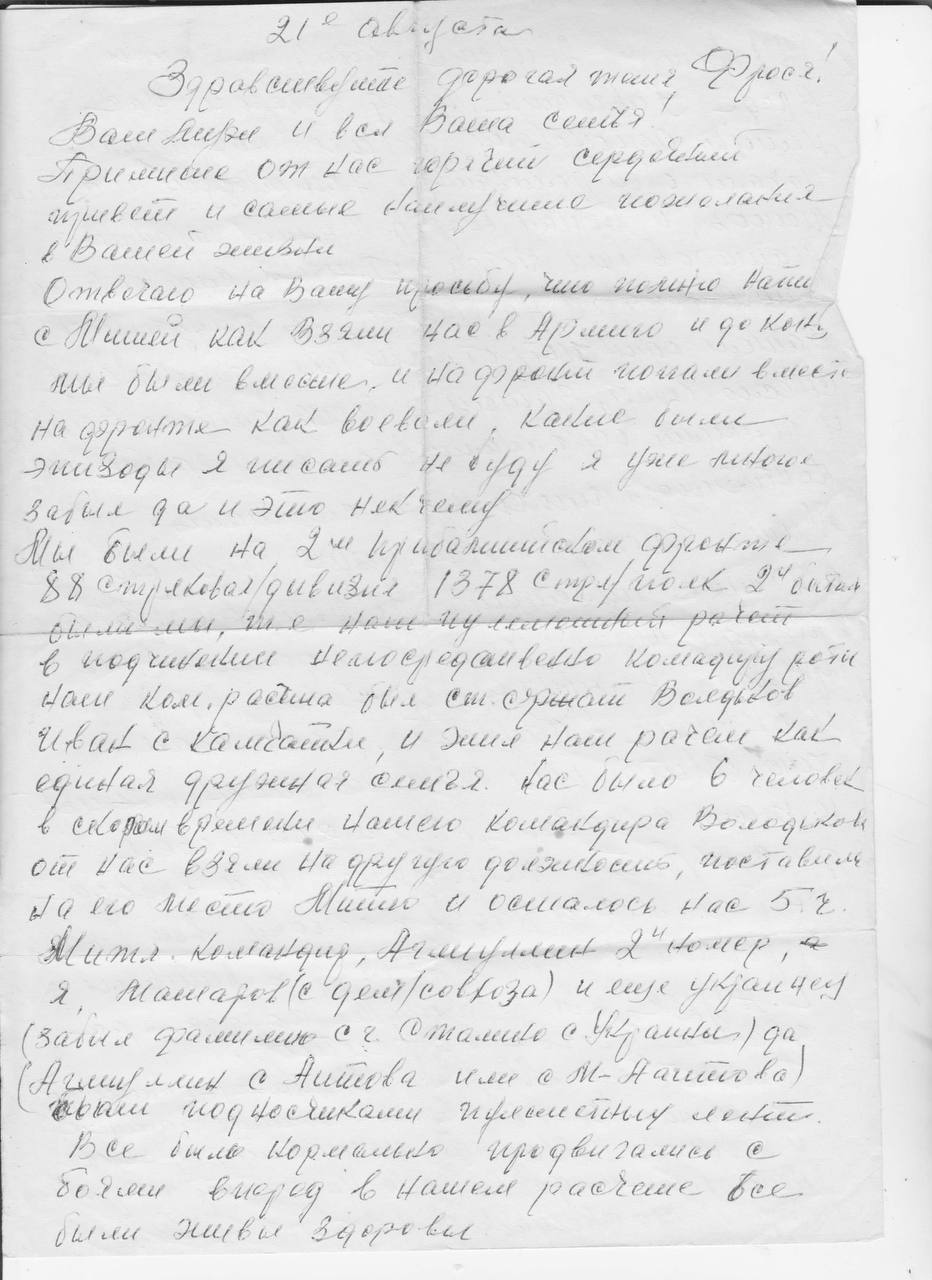 21е августа
Здравствуйте дорогая тётя, Фрося!
Ваш и вся Ваша семья!
Примите от нас горячий сердечный
привет и самые наилучшие пожелания
в Вашей жизни
Отвечаю на Вашу просьбу, что помню напи
с Мишей как взяли нас в Армию и до конц
мы были вместе, и на фронт попали вместе
на фронте как воевали, какие были
эпизоды я писать не буду я уже многое
забыл да и это нек чему
Мы были на 2ом прибалтийском фронте
88 стрлковая/дивизия 1378 стрл/полк 2й батал
были мы, т.е наш пулемётный рачёт
в подчинении непосредственно командиру роты
наш ком. расчёта был ст. сржант Володьков
Иван с камчатки, и жил наш рачёт как
единая дружная семья. нас было 6 человек
в скором времени нашего командира Володьков
от нас взяли на другую должность, поставили
на его место Митю и осталось нас 5 ч.
Митя. командир, Аглиуллин 2й номер,
я, Татаров (с дем/совхоза) и еще украинец
(забыл фамилию с г. Сталино с Украины) да
(Аглиуллин с Аитова или с М-Аитова)
были подносчиками пулеметных лент.
Все было нормально продвигались с
боями вперод в нашем расчете все
были живы здоровы